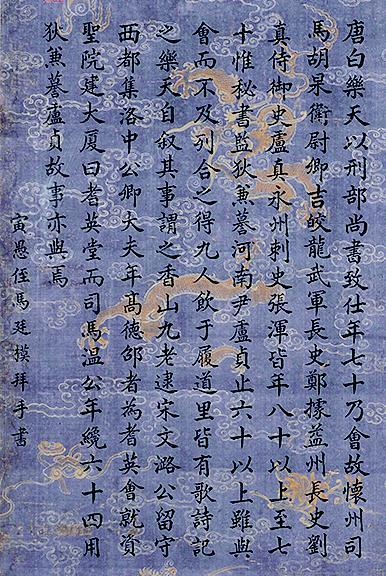 唐白樂天以刑部尚書致仕年七十乃會故懷州司
馬胡杲衛尉卿吉皎龍武軍長史鄭據益州長史劉
真侍御史盧真永州刺史張渾皆年八十以上至七
十惟祕書監狄兼謩河南尹盧貞止六十以上雖與
會而不及列合之得九人飲于履道里皆有歌詩記
之樂天自叙其事謂之香山九老逮宋文潞公留守
西都集洛中公卿大夫年髙德邵者為耆英會就資
聖院建大厦曰耆英堂而司馬温公年纔六十四用
狄兼謩盧貞故事亦與焉
寅愚侄馬廷模拜手書